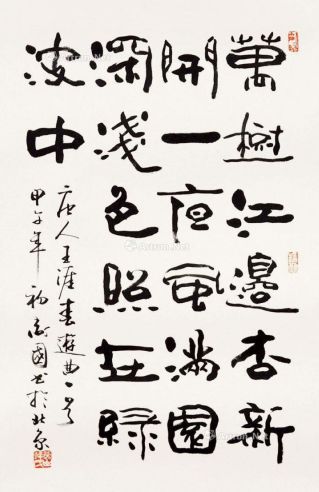 萬樹江邊杏新
開一夜風滿園
深淺色照在綠
波中
唐人王涯春遊曲一首
甲午年 國书於北京
Artron.Net